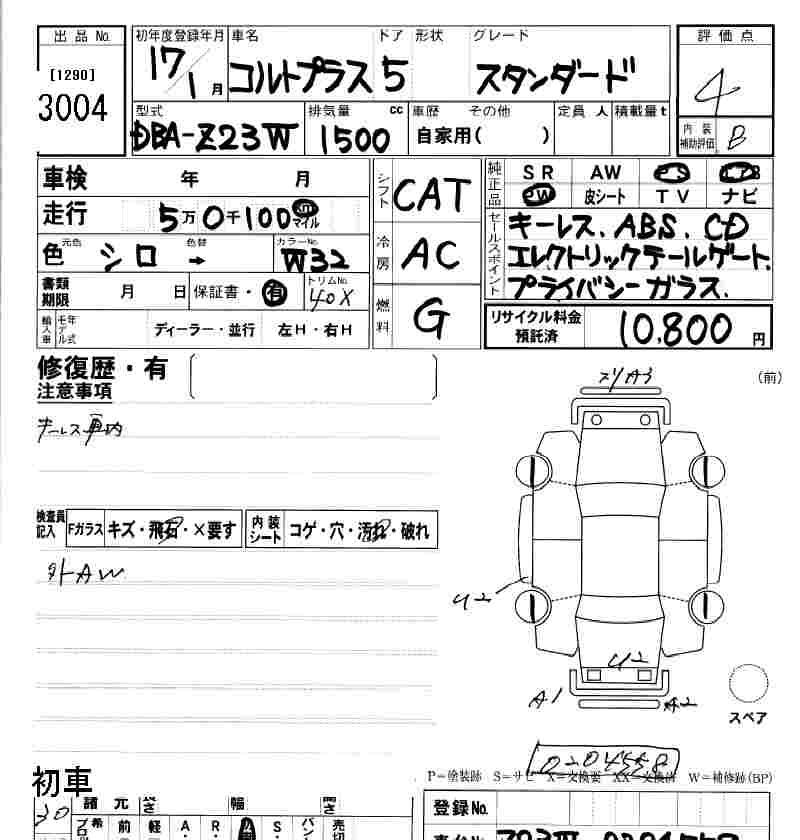 出品No.
[1290]
3004
初年度登録年月
17/1月
車名
コルトプラス
ドア
5
形状
グレード
スタンダード
評価点
4
内装補助評価
B
型式
DBA-Z23W
排気量 cc
1500
車歴 その他
自家用( )
定員 人
積載量t
車検 年 月
走行 5万0千100 km マイル
色 元色 シロ 色替 → カラーNo. W32
書類期限 月 日
保証書・有
トリムNo. 40X
輸入車 モデル年式
ディーラー・並行
左H・右H
シフト CAT
冷房 AC
燃料 G
純正品 SR AW PS エアB
PW 皮シート TV ナビ
セールスポイント
キーレス. ABS. CD
エレクトリックテールゲート.
プライバシーガラス.
リサイクル料金預託済
10,800円
修復歴・有
注意事項
キーレス車内
検査員記入
Fガラス キズ・飛石・×要す
内装シート コゲ・穴・汚れ・破れ
外AW
(前)
A3
U2
U2
A1
A2
スペア
0204558
P=塗装跡 S=サビ X=交換要 XX=交換済 W=補修跡(BP)
初車
30
諸元
長さ
幅
高さ
登録No.
前
軽
A・
R・
S・
売切